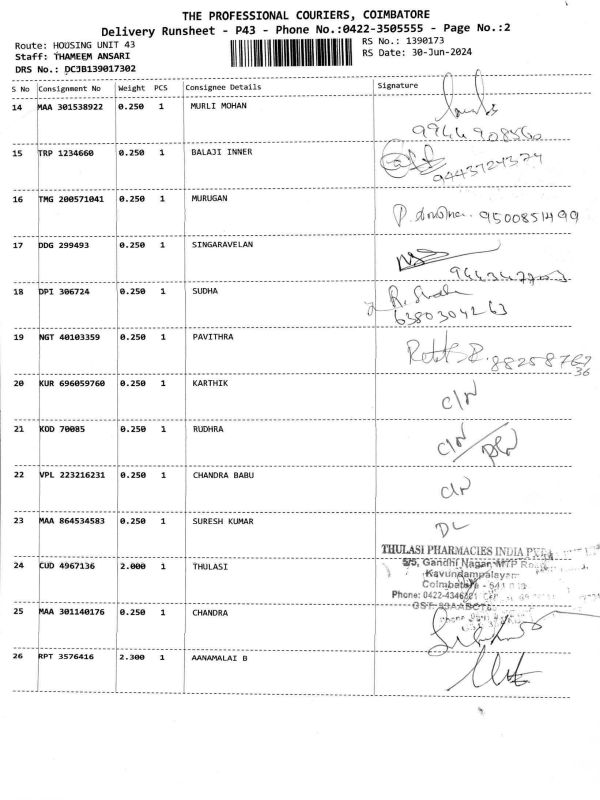 THE PROFESSIONAL COURIERS, COIMBATORE
Delivery Runsheet - P43 - Phone No.:0422-3505555 - Page No.:2
Route: HOUSING UNIT 43
RS No.: 1390173
Staff: THAMEEM ANSARI
RS Date: 30-Jun-2024
DRS No.: DCJB139017302
S No Consignment No Weight PCS Consignee Details Signature
14 MAA 301538922 0.250 1 MURLI MOHAN
9944908560
15 TRP 1234660 0.250 1 BALAJI INNER
9443724374
16 TMG 200571041 0.250 1 MURUGAN
9500851499
17 DDG 299493 0.250 1 SINGARAVELAN
18 DPI 306724 0.250 1 SUDHA
6380304263
19 NGT 40103359 0.250 1 PAVITHRA
88258767
36
20 KUR 696059760 0.250 1 KARTHIK
C/N
21 KOD 70085 0.250 1 RUDHRA
C/N
22 VPL 223216231 0.250 1 CHANDRA BABU
C/N
23 MAA 864534583 0.250 1 SURESH KUMAR
DL
THULASI PHARMACIES INDIA
24 CUD 4967136 2.000 1 THULASI
5/5, Gandhi Nagar, MTP Road
Kavundampalayam
Coimbatore - 641
Phone: 0422-4346
25 MAA 301140176 0.250 1 CHANDRA
26 RPT 3576416 2.300 1 AANAMALAI B